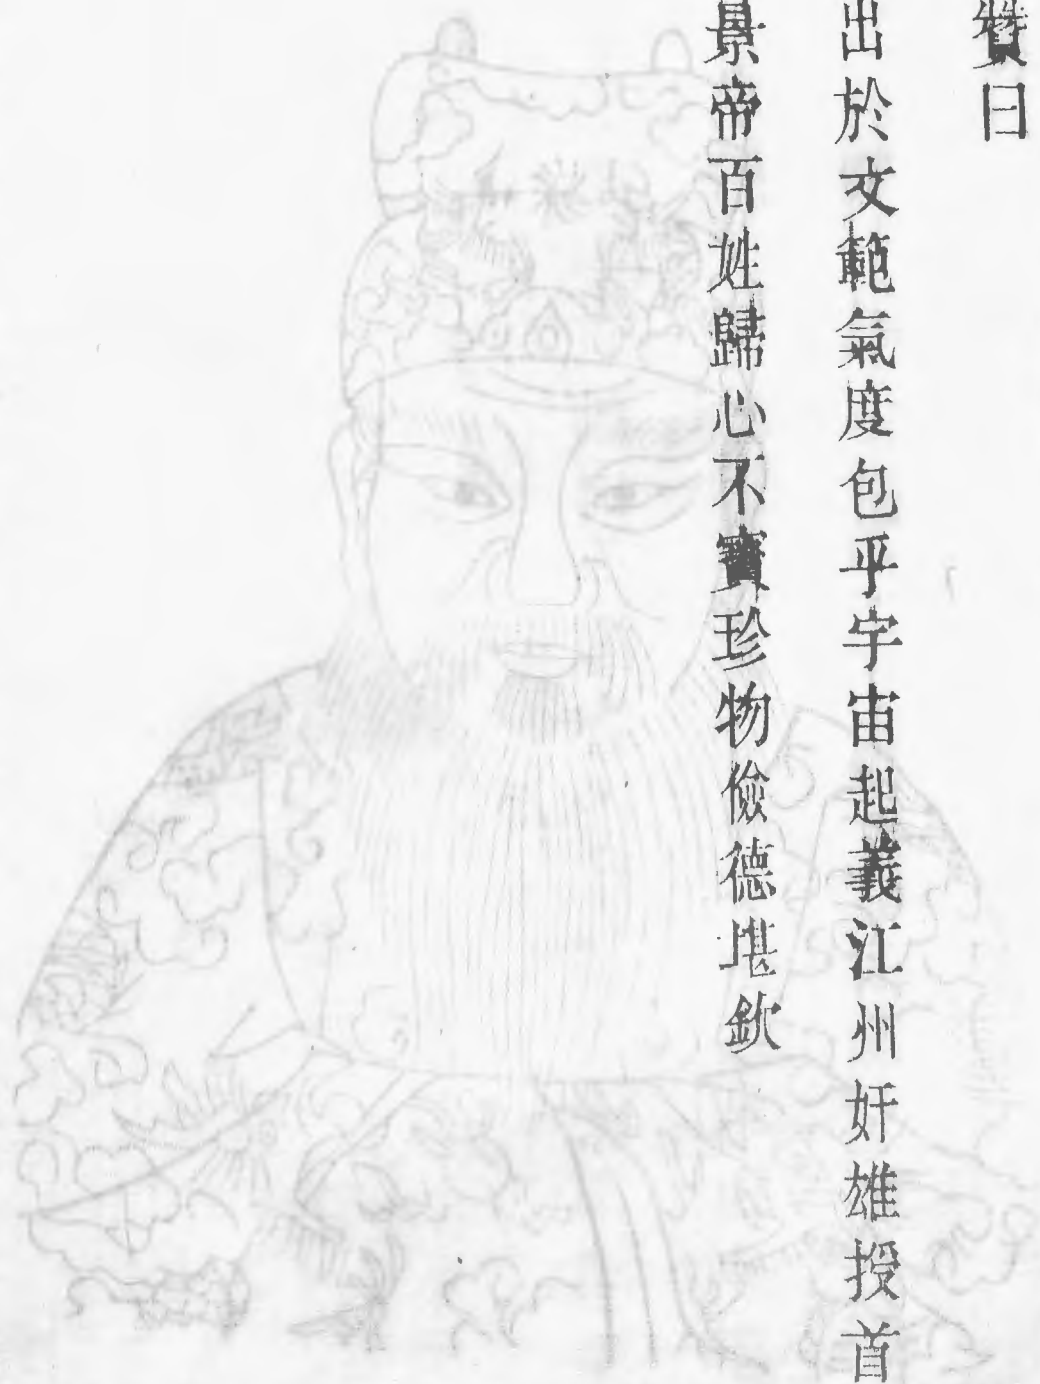 贊曰
出於文範氣度包乎宇宙起義江州奸雄授首
景帝百姓歸心不寶珍物儉德堪欽